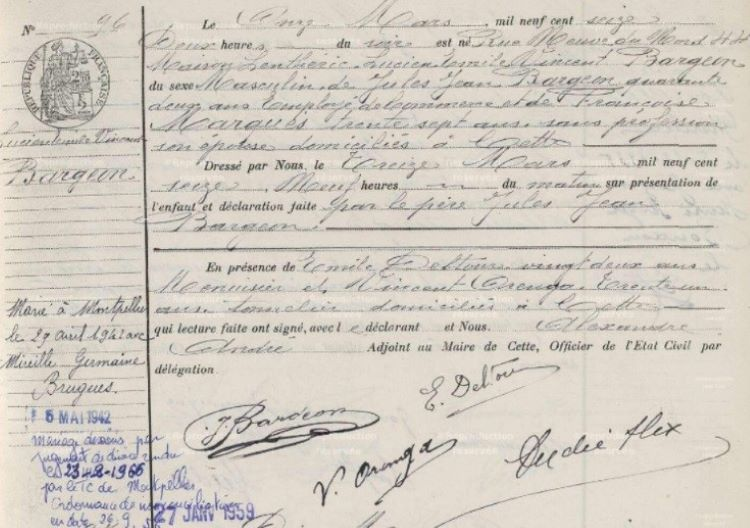 N° 96
RÉPUBLIQUE FRANÇAISE
Lucien Emile Vincent
Bargeon
Le Onze Mars, mil neuf cent seize
Deux heures du soir est né Rue Neuve du Nord 44
Maison Lenthéric, Lucien Emile Vincent Bargeon
du sexe Masculin, de Jules Jean Bargeon quarante
deux ans Employé de Commerce et de Françoise
Marquès trente sept ans, sans profession
son épouse domiciliés à Cette
Dressé par Nous, le Treize Mars mil neuf cent
seize, Neuf heures du matin sur présentation de
l'enfant et déclaration faite par le père Jules Jean
Bargeon.
En présence de Emile Deltour vingt deux ans
Menuisier et Vincent Orenga, trente un
ans, tonnelier domiciliés à Cette
qui lecture faite ont signé, avec le déclarant et Nous. Alexandre
André Adjoint au Maire de Cette, Officier de l'Etat Civil par
délégation.
J Bargeon
E. Deltour
V. Orenga
André Alex
Marié à Montpellier
le 29 avril 1942 avec
Mireille Germaine
Brugues.
5 MAI 1942
mariage dissous par
jugement de divorce rendu
le 23-8-1966
par le TC de Montpellier
Ordonnance de non conciliation
en date 26.9.
27 JANV 1959